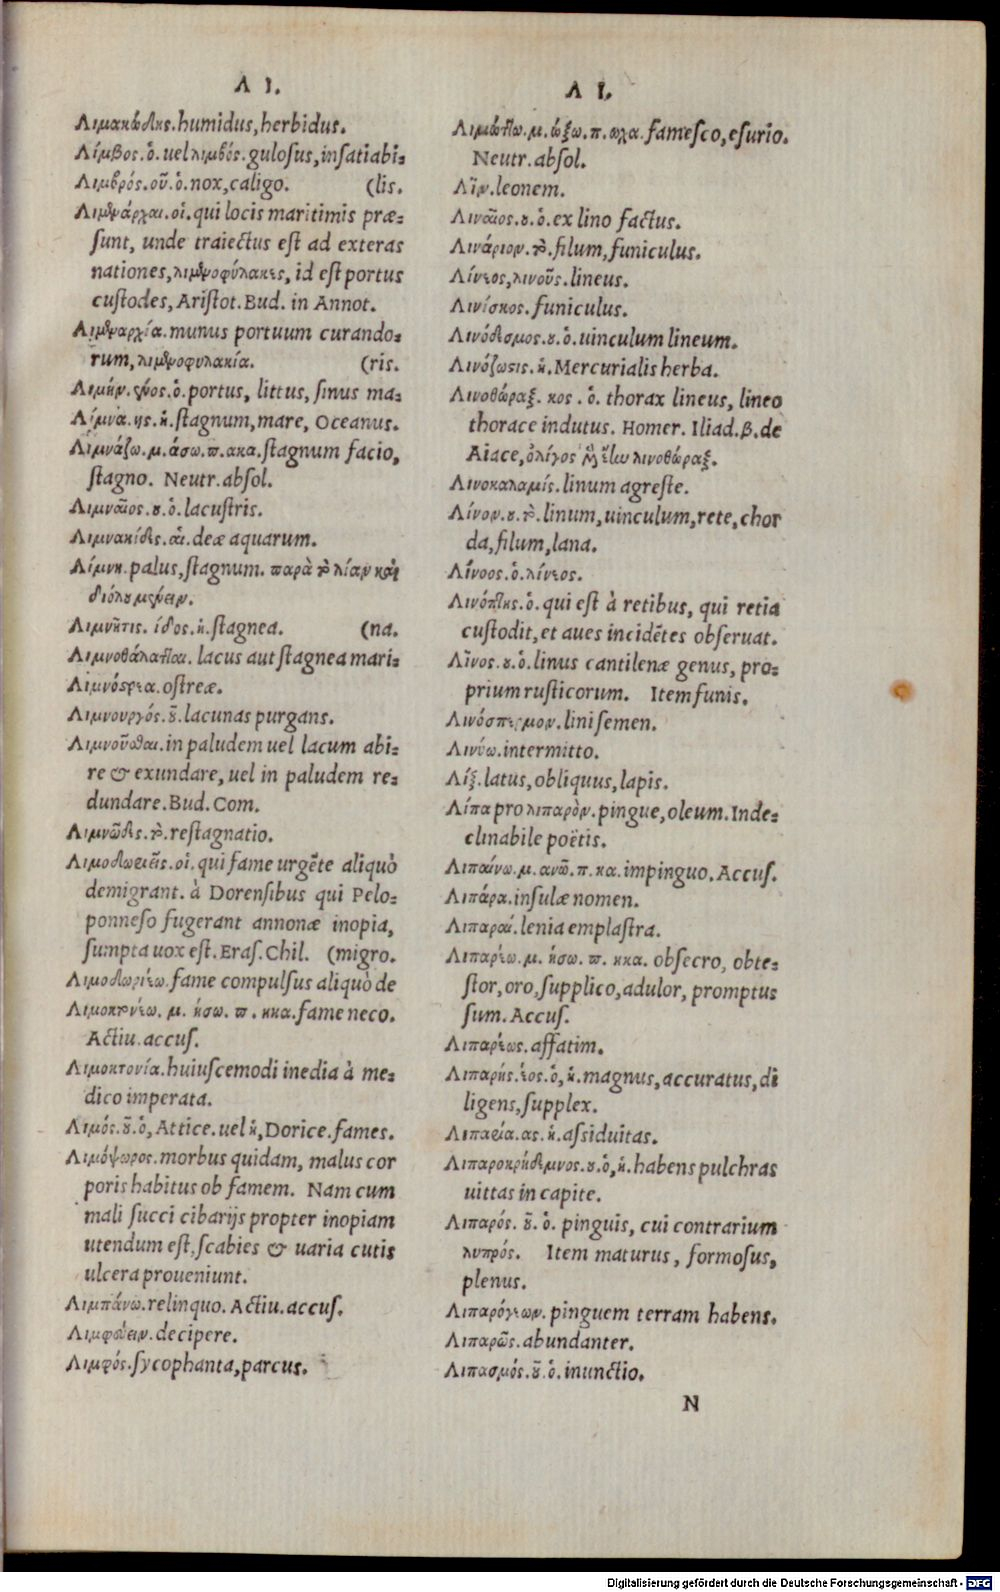 Λ Ι.
Λιμακώδης. humidus, herbidus.
Λίμβος. ὁ. uel λιμβός. gulosus, insatiabi=
Λιμβρός. οῦ. ὁ. nox, caligo. (lis.
Λιμενάρχαι. οἱ. qui locis maritimis præ=
sunt, unde traiectus est ad exteras
nationes, λιμενοφύλακες, id est portus
custodes, Aristot. Bud. in Annot.
Λιμεναρχία. munus portuum curando=
rum, λιμενοφυλακία. (ris.
Λιμήν. ένος. ὁ. portus, littus, sinus ma=
Λίμνα. ης. ἡ. stagnum, mare, Oceanus.
Λιμνάζω. μ. άσω. π. ακα. stagnum facio,
stagno. Neutr. absol.
Λιμναῖος. ου. ὁ. lacustris.
Λιμνακίδες. αἱ. deæ aquarum.
Λίμνη. palus, stagnum. παρὰ τὸ λίαν καὶ
διόλου μένειν.
Λιμνῆτις. ίδος. ἡ. stagnea. (na.
Λιμνοθάλατται. lacus aut stagnea mari=
Λιμνόστρεα. ostreæ.
Λιμνουργός. οῦ. lacunas purgans.
Λιμνοῦσθαι. in paludem uel lacum abi=
re & exundare, uel in paludem re=
dundare. Bud. Com.
Λιμνῶδες. τὸ. restagnatio.
Λιμοδωριεῖς. οἱ. qui fame urgẽte aliquò
demigrant. à Dorensibus qui Pelo=
ponneso fugerant annonæ inopia,
sumpta uox est. Eras. Chil. (migro.
Λιμοδωριέω. fame compulsus aliquò de
Λιμοκτονέω. μ. ήσω. π. ηκα. fame neco.
Actiu. accus.
Λιμοκτονία. huiuscemodi inedia à me=
dico imperata.
Λιμός. οῦ. ὁ, Attice. uel ἡ, Dorice. fames.
Λιμόψωρος. morbus quidam, malus cor
poris habitus ob famem. Nam cum
mali succi cibarijs propter inopiam
utendum est, scabies & uaria cutis
ulcera proueniunt.
Λιμπάνω. relinquo. Actiu. accus.
Λιμφεύειν. decipere.
Λιμφός. sycophanta, parcus.
Λ Ι.
Λιμώττω. μ. ώξω. π. ωχα. famesco, esurio.
Neutr. absol.
Λῖν. leonem.
Λιναῖος. ου. ὁ. ex lino factus.
Λινάριον. τὸ. filum, funiculus.
Λίνεος, λινοῦς. lineus.
Λινίσκος. funiculus.
Λινόδεσμος. ου. ὁ. uinculum lineum.
Λινόζωσις. ἡ. Mercurialis herba.
Λινοθώραξ. κος. ὁ. thorax lineus, lineo
thorace indutus. Homer. Iliad. β. de
Aiace, ὀλίγος μὲν ἔην λινοθώραξ.
Λινοκαλαμίς. linum agreste.
Λίνον. ου. τὸ. linum, uinculum, rete, chor
da, filum, lana.
Λίνοος. ὁ. λίνεος.
Λινόπτης. ὁ. qui est à retibus, qui retia
custodit, et aues incidẽtes obseruat.
Λῖνος. ου. ὁ. linus cantilenæ genus, pro=
prium rusticorum. Item funis.
Λινόσπερμον. lini semen.
Λινύω. intermitto.
Λίξ. latus, obliquus, lapis.
Λίπα pro λιπαρὸν. pingue, oleum. Inde=
clinabile poëtis.
Λιπαίνω. μ. ανῶ. π. κα. impinguo. Accus.
Λιπάρα. insulæ nomen.
Λιπαραί. lenia emplastra.
Λιπαρέω. μ. ήσω. π. ηκα. obsecro, obte=
stor, oro, supplico, adulor, promptus
sum. Accus.
Λιπαρέως. affatim.
Λιπαρής. έος. ὁ, ἡ. magnus, accuratus, di
ligens, supplex.
Λιπαρία. ας. ἡ. assiduitas.
Λιπαροκρήδεμνος. ου. ὁ, ἡ. habens pulchras
uittas in capite.
Λιπαρός. οῦ. ὁ. pinguis, cui contrarium
λυπρός. Item maturus, formosus,
plenus.
Λιπαρόγεων. pinguem terram habens.
Λιπαρῶς. abundanter.
Λιπασμός. οῦ. ὁ. inunctio.
N
Digitalisierung gefördert durch die Deutsche Forschungsgemeinschaft - DFG